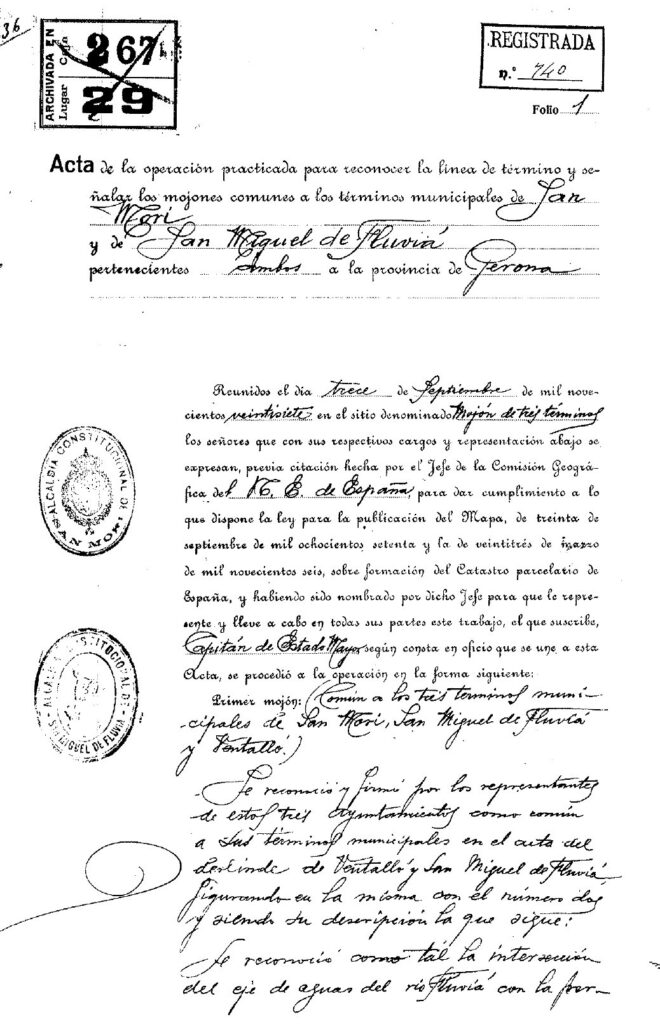 36
ARCHIVADA EN
Lugar Caja
267
29
REGISTRADA
n.º 740
Folio 1
Acta de la operación practicada para reconocer la línea de término y se-
ñalar los mojones comunes a los términos municipales de San
Mori
y de San Miguel de Fluviá
pertenecientes Ambos a la provincia de Gerona
Reunidos el día trece de Septiembre de mil nove-
cientos veintisiete en el sitio denominado Mojón de tres términos
los señores que con sus respectivos cargos y representación abajo se
expresan, previa citación hecha por el Jefe de la Comisión Geográ-
fica del N. E. de España para dar cumplimiento a lo
que dispone la ley para la publicación del Mapa, de treinta de
septiembre de mil ochocientos setenta y la de veintitrés de marzo
de mil novecientos seis, sobre formación del Catastro parcelario de
España, y habiendo sido nombrado por dicho Jefe para que le repre-
sente y lleve a cabo en todas sus partes este trabajo, el que suscribe,
Capitán de Estado Mayor según consta en oficio que se une a esta
Acta, se procedió a la operación en la forma siguiente:
Primer mojón: (Común a los tres terminos muni-
cipales de San Mori, San Miguel de Fluviá
y Ventallo.)
Se reconoció y firmó por los representantes
de estos tres Ayuntamientos como común
a sus terminos municipales en el acta del
deslinde de Ventalló y San Miguel de Fluviá,
figurando en la misma con el número dos
y siendo su descripción la que sigue:
Se reconoció como tál la intersección
del eje de aguas del río Fluviá con la por-
ALCALDIA CONSTITUCIONAL DE
SAN MORI
ALCALDIA CONSTITUCIONAL DE
SAN MIGUEL DE FLUVIÁ